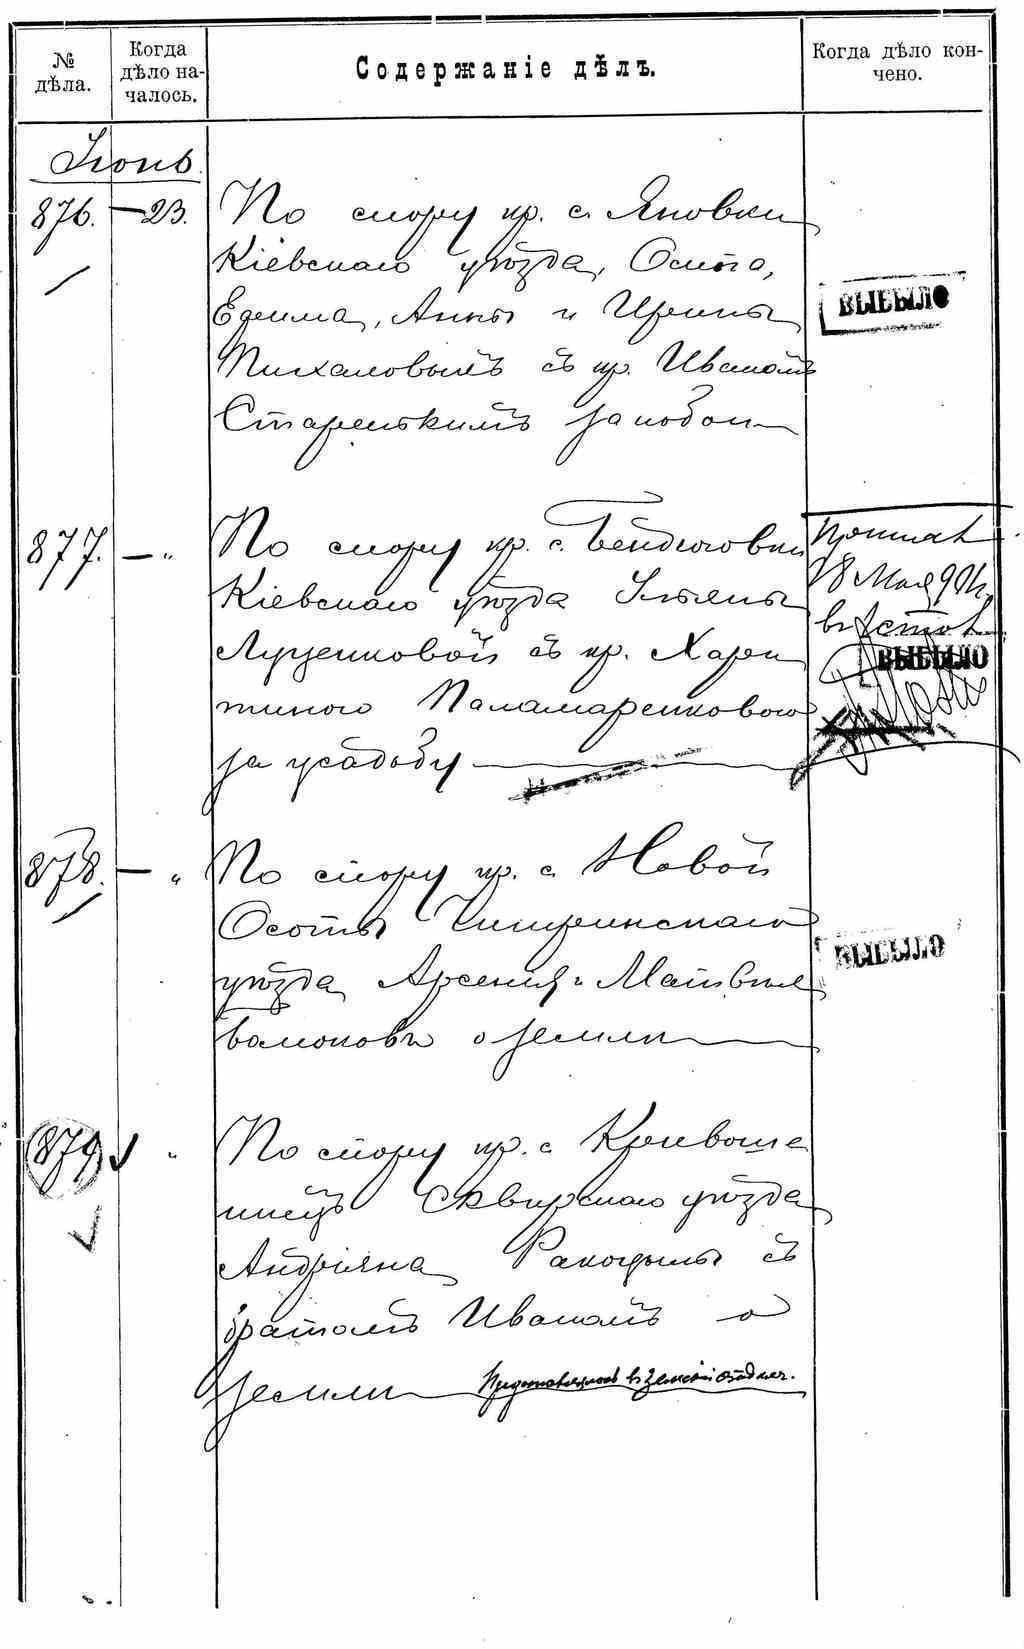 № дѣла.
Когда дѣло началось.
Содержаніе дѣлъ.
Когда дѣло кончено.
Іюнь.
876. — 23. По спору кр. с. Яновки
Кіевскаго уѣзда, Осипа,
Ефима, Анны и Ирины
Михаловыхъ съ кр. Иваномъ
Старенькимъ за побои
ВЫБЫЛО
877. — „ По спору кр. с. Бендюговки
Кіевскаго уѣзда Ульяны
Луценковой съ кр. Хари
тиною Паламаренковою
за усадьбу
18 Мая
ВЫБЫЛО
878. — „ По спору кр. с. Новой
Осоты Чигиринскаго
уѣзда Арсенія и Матвѣя
о земли
ВЫБЫЛО
879 „ По спору кр. с. Кривоше
инецъ Сквирскаго уѣзда
Андріяна съ
братомъ Иваномъ о
земли